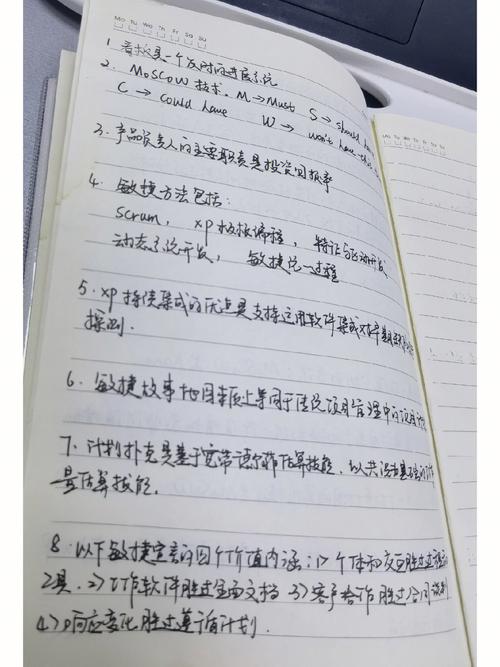 Mo Tu We Th Fr Sa Su
1. 看板是一个及时的进度系统
2. MoSCoW 技术. M→Must S→should have
C→could have W→won't have this
3. 产品负责人的主要职责是投资回报率
4. 敏捷方法包括:
scrum, xp极限编程, 特征驱动开发
动态系统开发, 敏捷统一过程
5. xp持续集成的优点是支持运用软件集成对早期
探测.
6. 敏捷故事地图本质上等同于传统项目管理中的项目
7. 计划扑克是基于宽带德尔菲估算技能, 以共识为基础的
量估算技能.
8. 以下敏捷宣言的四个价值内涵: 1> 个体和交互胜过过程和
工具. 2> 工作软件胜过全面文档 3> 客户合作胜过合同谈判
4> 响应变化胜过遵循计划.